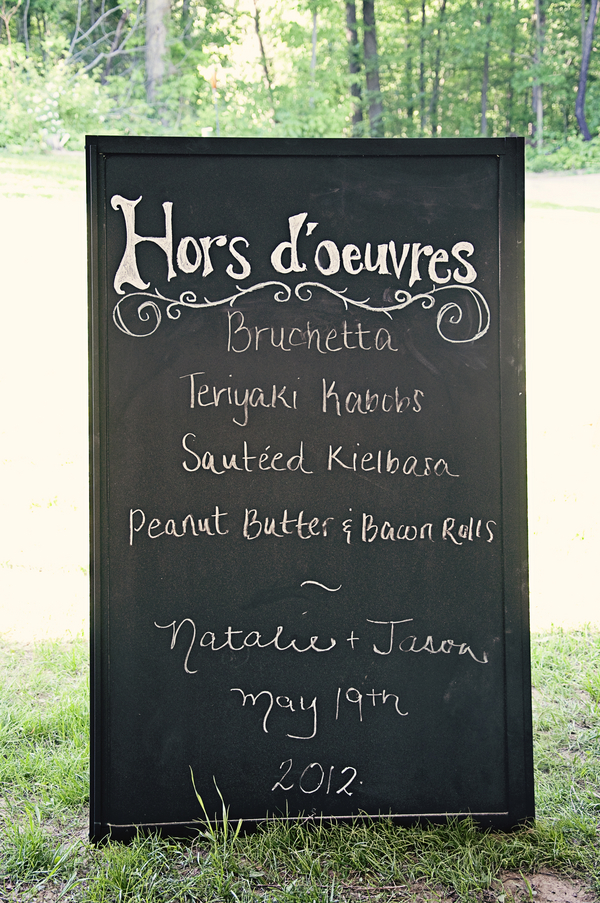 Hors d'oeuvres
Bruchetta
Teriyaki Kabobs
Sautéed Kielbasa
Peanut Butter & Bacon Rolls
~
Natalie + Jason
May 19th
2012